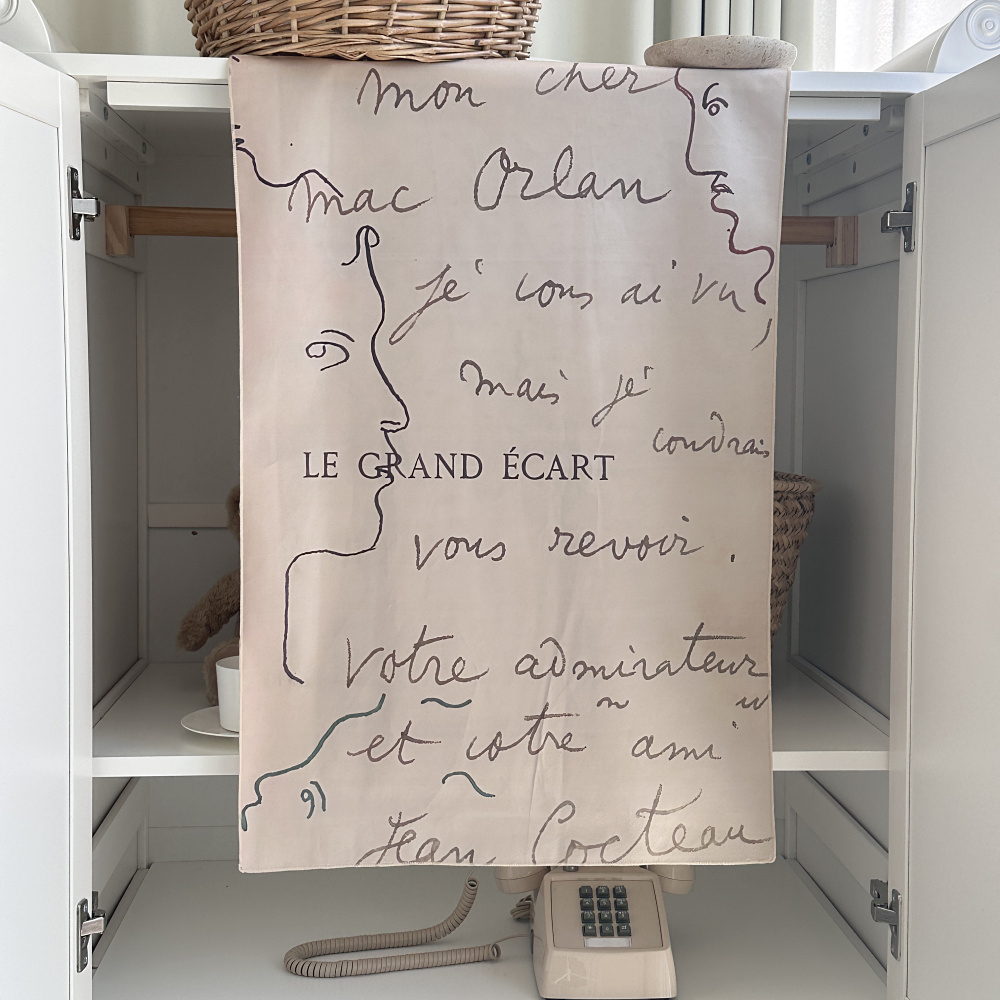 mon cher
mac Orlan
je vous ai vu,
mais je
voudrais
LE GRAND ÉCART
vous revoir.
Votre admirateur
et votre ami
Jean Cocteau